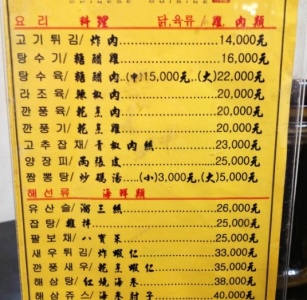 요리 料理 닭,육류/雞肉類
고기튀김/炸肉 14,000元
탕수기/糖醋雞 16,000元
탕수육/糖醋肉..(中)15,000元,(大)22,000元
라조육/辣椒肉 20,000元
깐풍육/乾烹肉 20,000元
깐풍기/乾烹雞 20,000元
고추잡채/青椒肉絲 23,000元
양장피/兩張皮 25,000元
짬뽕탕/炒碼湯....(小)3,000元,(大)5,000元
해선류 海鮮類
유산슬/溜三絲 26,000元
잡탕/雜拌 25,000元
팔보채/八寶菜 25,000元
새우튀김/炸蝦仁 33,000元
깐풍새우/乾烹蝦仁 35,000元
해삼탕/紅燒海參 38,000元
해삼쥬스/海參肘子 40,000元